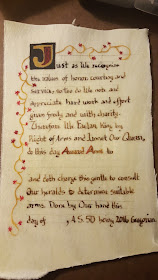 Just as We recognize
the values of honor, courtesy and
service, so too do We note and
appreciate hard work and effort
given freely and with charity.
Therefore We Fadan King by
Right of Arms and Queen
do this day Award Arms to
and doth charge this gentle to consult
Our heralds to determine suitable
arms. Done by Our hand this
day of , A.S. 50 being 2016 Gregorian.